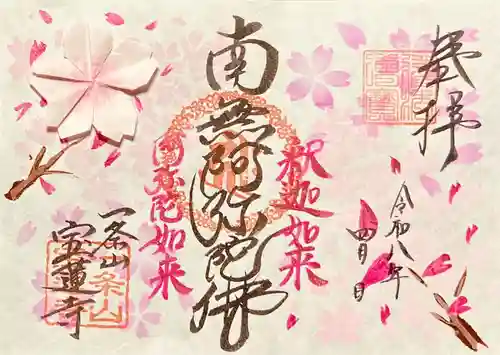 奉拝
令和八年
四月 日
釈迦如来
南無阿弥陀佛
阿弥陀如来
一条山
宝蓮寺